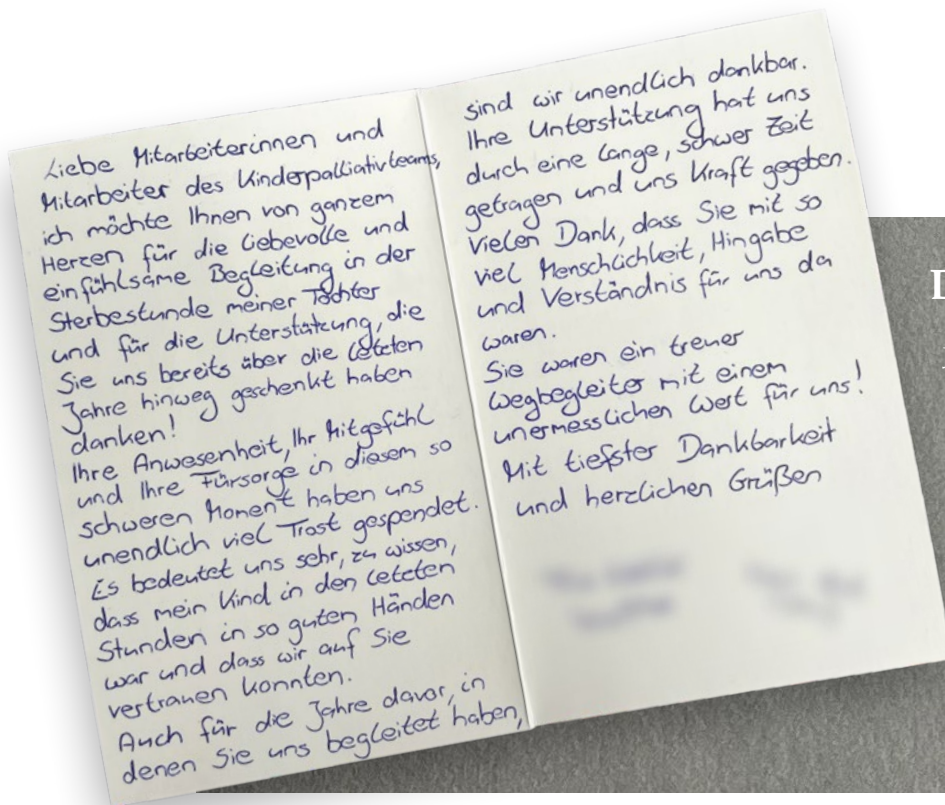 Liebe Mitarbeiterinnen und
Mitarbeiter des Kinderpalliativteams,
ich möchte Ihnen von ganzem
Herzen für die liebevolle und
einfühlsame Begleitung in der
Sterbestunde meiner Tochter
und für die Unterstützung, die
Sie uns bereits über die letzten
Jahre hinweg geschenkt haben
danken!
Ihre Anwesenheit, Ihr Mitgefühl
und Ihre Fürsorge in diesem so
schweren Moment haben uns
unendlich viel Trost gespendet.
Es bedeutet uns sehr, zu wissen,
dass mein Kind in den letzten
Stunden in so guten Händen
war und dass wir auf Sie
vertrauen konnten.
Auch für die Jahre davor, in
denen Sie uns begleitet haben,
sind wir unendlich dankbar.
Ihre Unterstützung hat uns
durch eine lange, schwer Zeit
getragen und uns Kraft gegeben.
Vielen Dank, dass Sie mit so
viel Menschlichkeit, Hingabe
und Verständnis für uns da
waren.
Sie waren ein treuer
Wegbegleiter mit einem
unermesslichen Wert für uns!
Mit tiefster Dankbarkeit
und herzlichen Grüßen